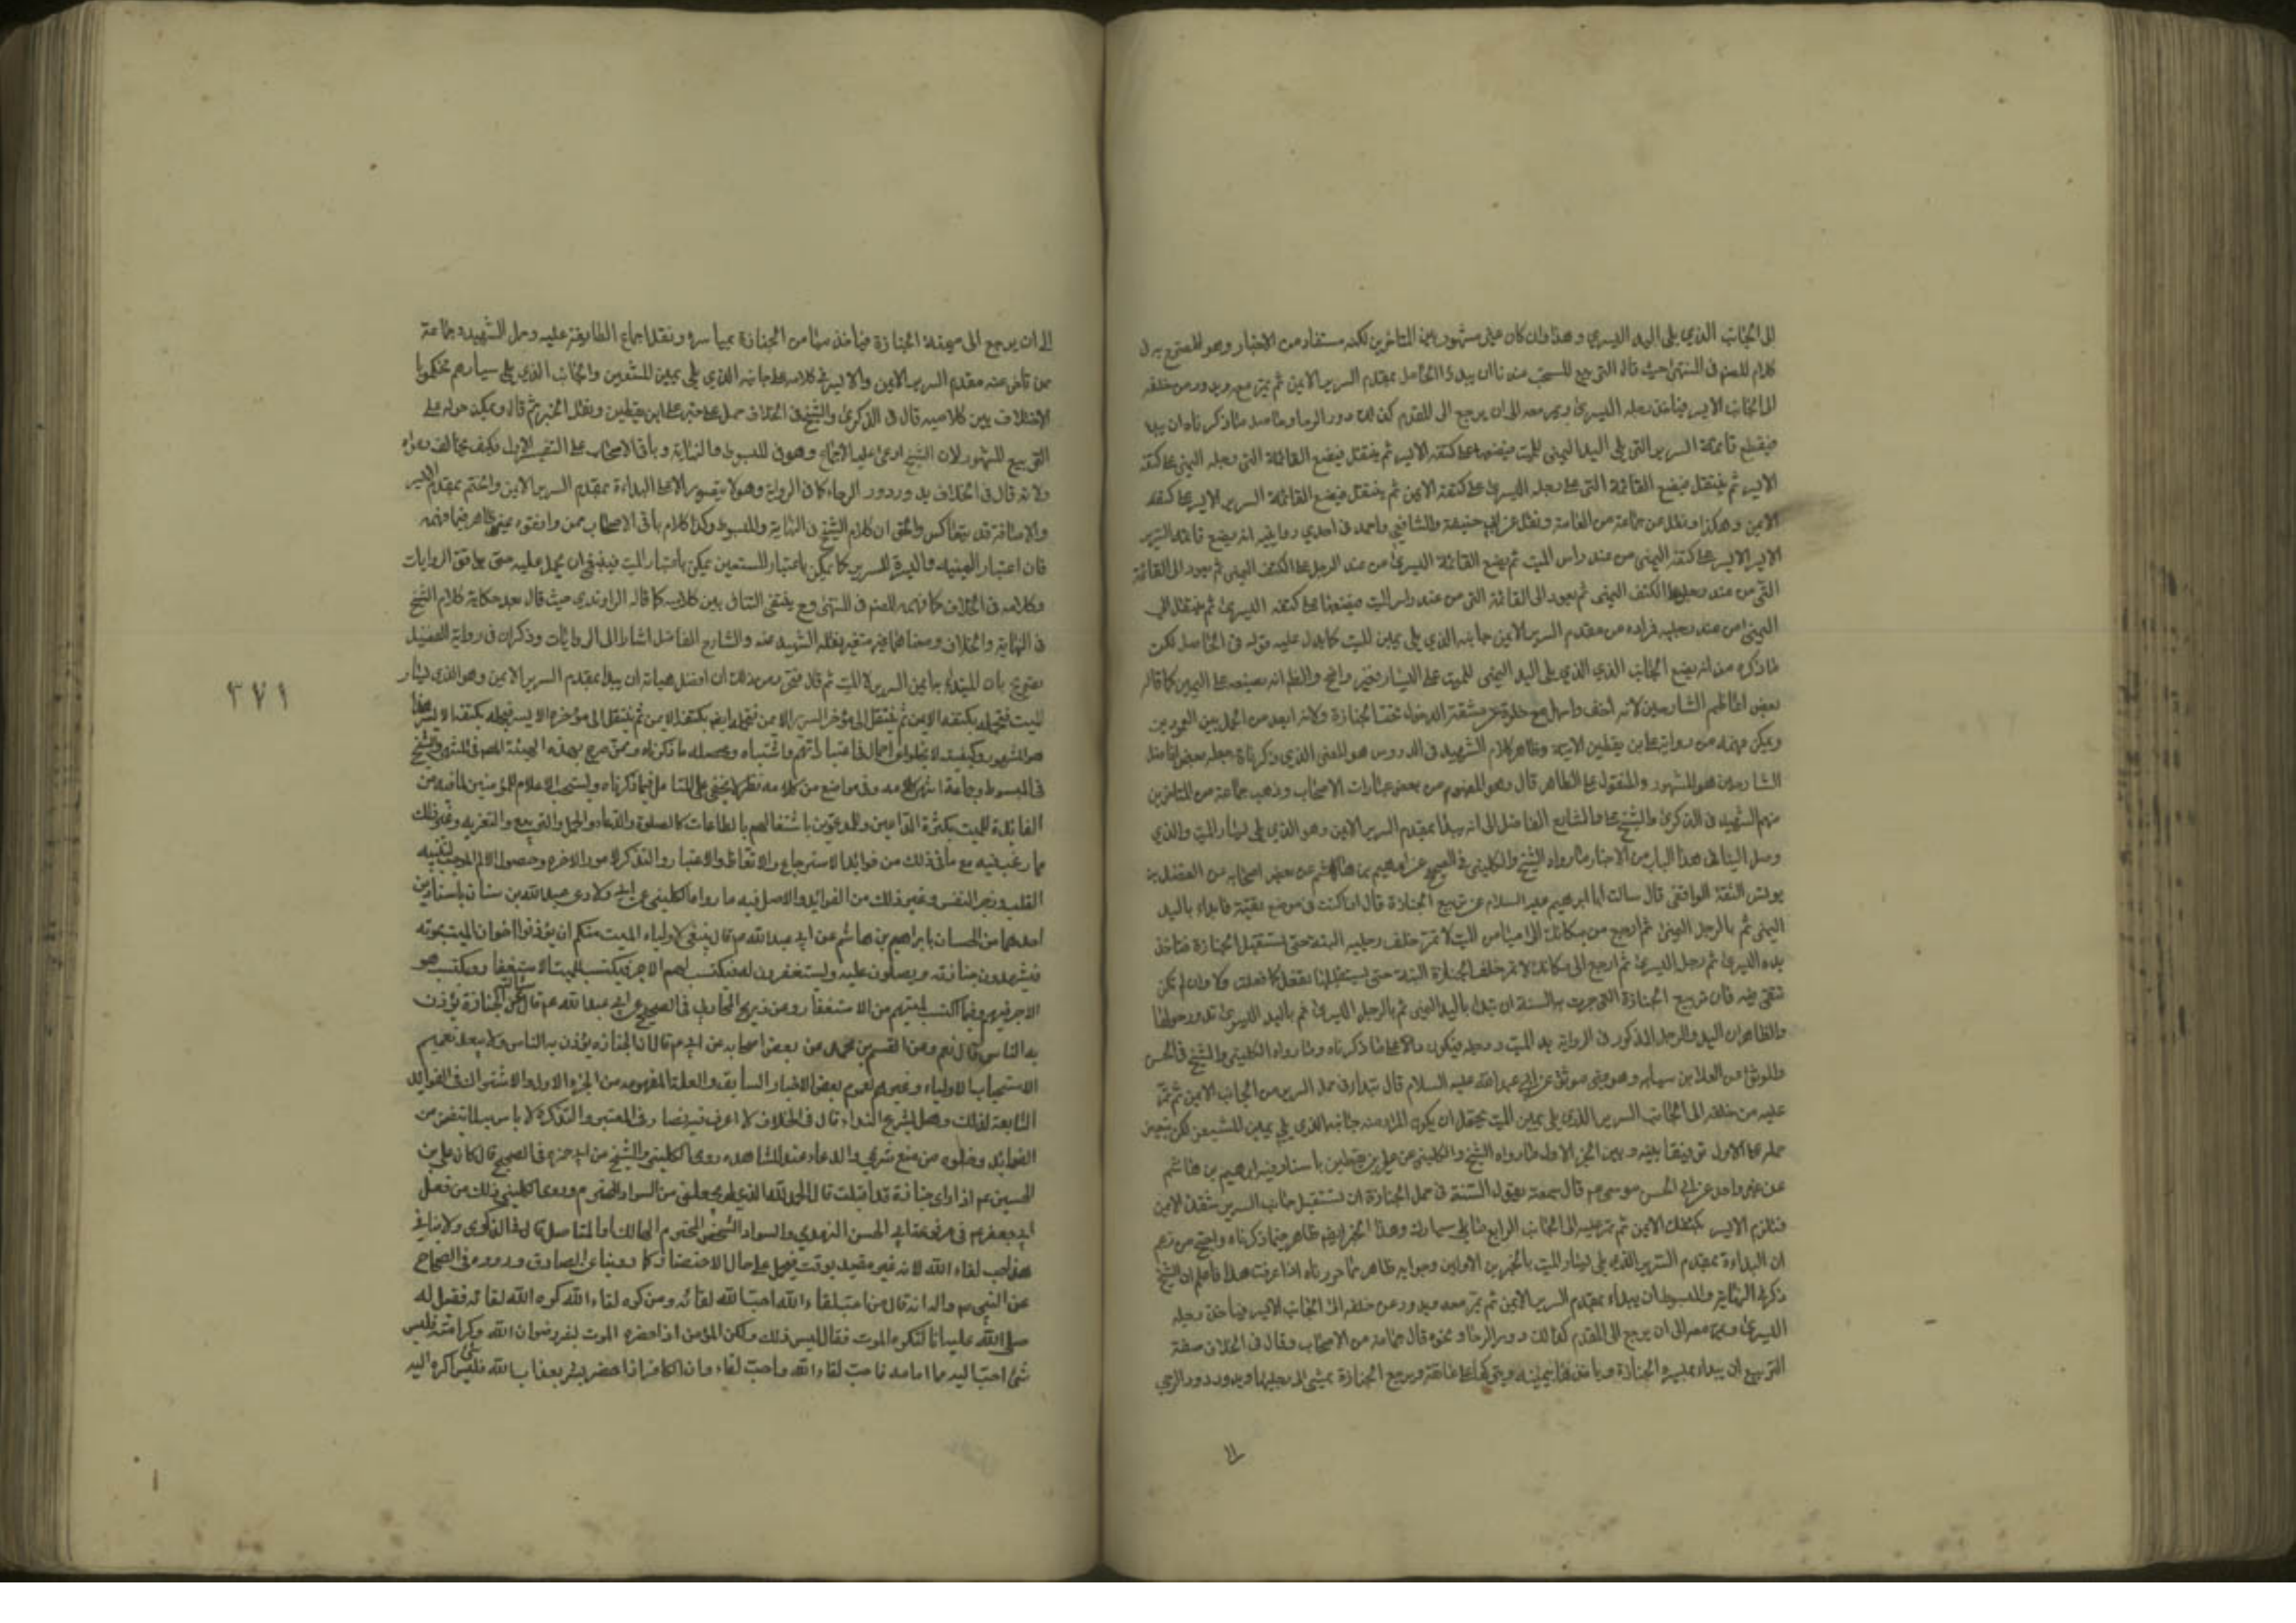 الى الجانب الذي يلى اليد اليسرى وهذا وان كان غير مشهور بين المتاخرين لكنه مستفاد من الاخبار وهو المصرح به في
كلام المصنف فى المنتهى حيث قال التربيع المستحب عندنا ان يبدأ الحامل بمقدم السرير الايمن ثم يمر معه ويدور من خلفه
الى الجانب الايسر فياخذ رجله اليسرى ويمر معه الى ان يرجع الى المقدم كذلك دور الرحا وحاصله ما ذكرناه ان يبدأ
فيضع قائمة السرير التى يلى اليد اليمنى للميت فيضعها على كتفه الايسر ثم ينتقل فيضع القائمة التى رجله اليمنى على كتفه
الايسر ثم ينتقل فيضع القائمة التى على رجله اليسرى على كتفه الايمن ثم ينتقل فيضع القائمة السرير الايسر على كتفه
الايمن وهكذا ونقل عن جماعة من العامة ونقل عن ابى حنيفة والشافعي واحمد فى احدي روايتيه انه يضع قائمة السرير
الايسر على كتفه اليمنى من عند راس الميت ثم يضع القائمة اليسرى من عند الرجل على الكتف اليمنى ثم يعود الى القائمة
التى من عند رجليه الكتف اليمنى ثم يعود الى القائمة التى من عند راس الميت فيضعها على كتفه اليسرى ثم ينتقل الى
اليمنى من عند رجليه فراده من مقدم السرير الايمن جانبه الذي يلى يمين الميت كما يدل عليه قوله فى الحاصل لكن
ما ذكره من انه يضع الجانب الذي يلى اليد اليمنى للميت على اليسار غير واضح والظ انه يضعه على اليمين كما قاله
بعض اعاظم الشارحين لانه اخف واسهل مع خلوه عن مشقة الدخول تحت الجنازة ولانه ابعد من الحمل بين العمودين
ويمكن فهمه من رواية على بن يقطين الاتية وظاهر كلام الشهيد فى الدروس هو المعنى الذي ذكرناه وجعله بعض افاضل
الشارحين هو المشهور والمنقول على الظاهر قال وهو المفهوم من بعض عبارات الاصحاب وذهب جماعة من المتاخرين
منهم الشهيد فى الذكرى والشيخ على والشارح الفاضل الى انه يبدأ بمقدم السرير الايمن وهو الذي يلى يسار الميت والذي
وصل الينا فى هذا الباب من الاخبار ما رواه الشيخ والكليني فى الصحيح عن ابراهيم بن هاشم عن بعض اصحابه عن الفضل بن
يونس الثقة الواقفى قال سالت ابا ابراهيم عليه السلام عن تربيع الجنازة قال اذا كنت فى موضع تقية فابدأ باليد
اليمنى ثم بالرجل اليمنى ثم ارجع من مكانك الى ميامن الميت لا تمر خلف رجليه البتة حتى تستقبل الجنازة فتاخذ
يده اليسرى ثم رجل اليسرى ثم ارجع الى مكانك لا تمر خلف الجنازة البتة حتى تستقبلها تفعل كما فعلت اولا وان لم تكن
تتقى فيه فان تربيع الجنازة التى جرت به السنة ان تبدا باليد اليمنى ثم بالرجل اليمنى ثم بالرجل اليسرى ثم باليد اليسرى تدور حولها
والظاهر ان اليد والرجل المذكور فى الرواية يد الميت ورجله فيكون دالا على ما ذكرناه وما رواه الكليني والشيخ فى الحسن
والموثق عن العلا بن سيابه وهو موثق عن ابى عبد الله عليه السلام قال تبدأ فى حمل السرير من الجانب الايمن ثم تمر
عليه من خلفه الى الجانب السرير الذي يلى يمين الميت يحتمل ان يكون المراد منه جانبه الذي يلى يمين المشيعين لكن يتعين
حمله على الاول توفيقا بينه وبين الخبر الاول ما رواه الشيخ والكليني عن على بن يقطين باسناد فيه ابراهيم بن هاشم
عن غير واحد عن ابى الحسن موسى عم قال سمعته يقول السنة فى حمل الجنازة ان تستقبل جانب السرير بشقك الايمن
فتلزم الايسر بكتفك الايمن ثم تمر عليه الى الجانب الرابع مما يلى يسارك وهذا الخبر ايضا ظاهر فيما ذكرناه واحتج من زعم
ان البداءة بمقدم السرير الذي يلى يسار الميت بالخبرين الاولين وجوابه ظاهر مما حررناه اذا عرفت هذا فاعلم ان الشيخ
ذكر فى النهاية والمبسوط ان يبداء بمقدم السرير الايمن ثم يمر معه ويدور من خلفه الى الجانب الايسر فياخذ رجله
اليسرى ويمر معه الى ان يرجع الى المقدم كذلك دور الرحا ونحوه قال جماعة من الاصحاب وقال فى الخلاف صفة
التربيع ان يبداء بميسرة الجنازة وياخذها بيمينه ويتركها على عاتقه ويربع الجنازة يمشى الى رجليها ويدور دور الرحى
الى
الى ان يرجع الى ميمنة الجنازة فياخذ ميامن الجنازة بمياسره ونقل اجماع الطايفة عليه وحمل الشهيد وجماعة
ممن تاخر عنه مقدم السرير الايمن والايسر فى كلامه على جانبه الذي يلى يمين المشيعين والجانب الذي يلى يسارهم فحكموا
الاختلاف بين كلاميه قال فى الذكرى والشيخ فى الخلاف عمل على خبر على بن يقطين ونقل الخبر ثم قال ويمكن حمله على
التربيع المشهور لان الشيخ ادعى عليه الاجماع وهو فى المبسوط والنهاية وباقى الاصحاب على التفسير الاول فكيف يخالف دعواه
ولانه قال فى الخلاف يدور دور الرحا كما فى الرواية وهو لا يتصور الا على البداءة بمقدم السرير الايمن والختم بمقدم الايسر
والاضافة قد يتعاكس والحق ان كلام الشيخ فى النهاية والمبسوط وكذا كلام باقى الاصحاب ممن وافقوه ظاهر فيما فهمه
فان اعتبار اليمينية واليسرة للسرير كما يمكن باعتبار المشيعين يمكن باعتبار الميت فينبغى ان يحمل عليه حتى يوافق الروايات
وكلامه فى الخلاف كما فهمه المصنف فى المنتهى وح ينتفى التنافى بين كلاميه كما قاله الراوندى حيث قال بعد حكاية كلام الشيخ
فى النهاية والخلاف ومعناهما غير متغير نقله الشهيد عنه والشارح الفاضل اشار الى الروايات وذكر ان فى رواية الفضيل
تصريح بان المبتدأ به ايمن السرير لا الميت ثم قال فتحرر من ذلك ان افضل هيأته ان يبدأ بمقدم السرير الايمن وهو الذي يلى يسار
الميت فيحمله بكتفه الايمن ثم ينتقل الى مؤخر السرير الايمن فيحمله ايضا بكتفه الايمن ثم ينتقل الى مؤخره الايسر فيحمله بكتفه الايسر
هو المشهور وكيفيته لا يخلو من اجمال فى عباراتهم واشتباه ومحصله ما ذكرناه وممن صرح بهذه الهيئة المصنف فى المنتهى والشيخ
فى المبسوط وجماعة انتهى كلامه وفى مواضع من كلامه نظر لا يخفى على المتامل فيما ذكرناه ويستحب الاعلام للمؤمنين لما فيه من
الفائدة للميت بكثرة الداعين وللمدعوين باشتغالهم بالطاعات كالصلوة والدعاء والحمل والتربيع والتعزيه وغير ذلك
مما رغب فيه مع ما فى ذلك من فوائد الاسترجاع والاتعاظ والاعتبار والتذكر لامور الاخره وحصول الالم الموجب لتنبيه
القلب وزجر النفس وغير ذلك من الفوائد والاصل فيه ما رواه الكليني عن ابى ولاد وعبد الله بن سنان باسنادين
احدهما من الحسان بابراهيم بن هاشم عن ابى عبد الله عم قال ينبغى لاولياء الميت منكم ان يؤذنوا اخوان الميت بموته
فيشهدون جنازته ويصلون عليه ويستغفرون له فيكتب لهم الاجر ويكتب للميت الاستغفار ويكتسب هو
الاجر فيهم وفيما اكتسب لميتهم من الاستغفار وعن ذريح المحاربى فى الصحيح عن ابى عبد الله عم قال سالته عن الجنازة يؤذن
به الناس قال نعم وعن القسم بن محمد عن بعض اصحابه عن ابى عبد الله عم قال ان الجنازه يؤذن به الناس ولا يبعد تعميم
الاستحباب للاولياء وغيرهم لعموم بعض الاخبار السابقة والعلة المفهومه من الخبر الاول والاشتراك فى الفوائد
التابعة لذلك وهل يشرع النداء قال فى الخلاف لا اعرف فيه نصا وفى المعتبر والتذكرة لا باس به لما يتضمن من
الفوائد وخلوه من منع شرعى والدعاء عند المشاهده روى الكليني والشيخ عن ابى حمزه فى الصحيح قال كان على بن
الحسين عم اذا راى جنازة قد اقبلت قال الحمد لله الذي لم يجعلنى من السواد المخترم وروى الكليني ذلك من فعل
ابى جعفر عم فى مرفوعة ابى الحسن النهدي والسواد الشخص والمخترم الهالك او المستاصل قال فى الذكرى ولا ينافى
هذا حب لقاء الله لانه غير مقيد بوقت فيحمل على حال الاحتضار كما روينا عن الصادق ورووه فى الصحاح
عن النبى ص واله انه قال من احب لقاء الله احب الله لقائه ومن كره لقاء الله كره الله لقائه فقيل له
صلى الله عليه انا لنكره الموت فقال ليس ذلك ولكن المؤمن اذا حضره الموت بشر برضوان الله وكرامته فليس
شئ احب اليه مما امامه فاحب لقاء الله واحب لقاءه وان الكافر اذا حضر بشر بعذاب الله فليس شئ اكره اليه
٣٧١